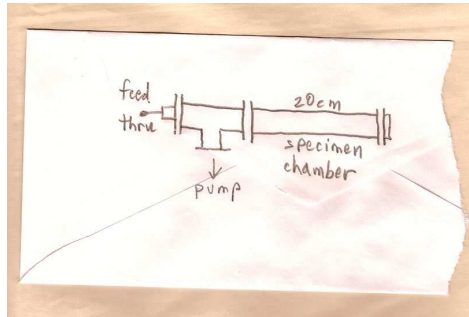 feed
thru
20cm
specimen
chamber
pump